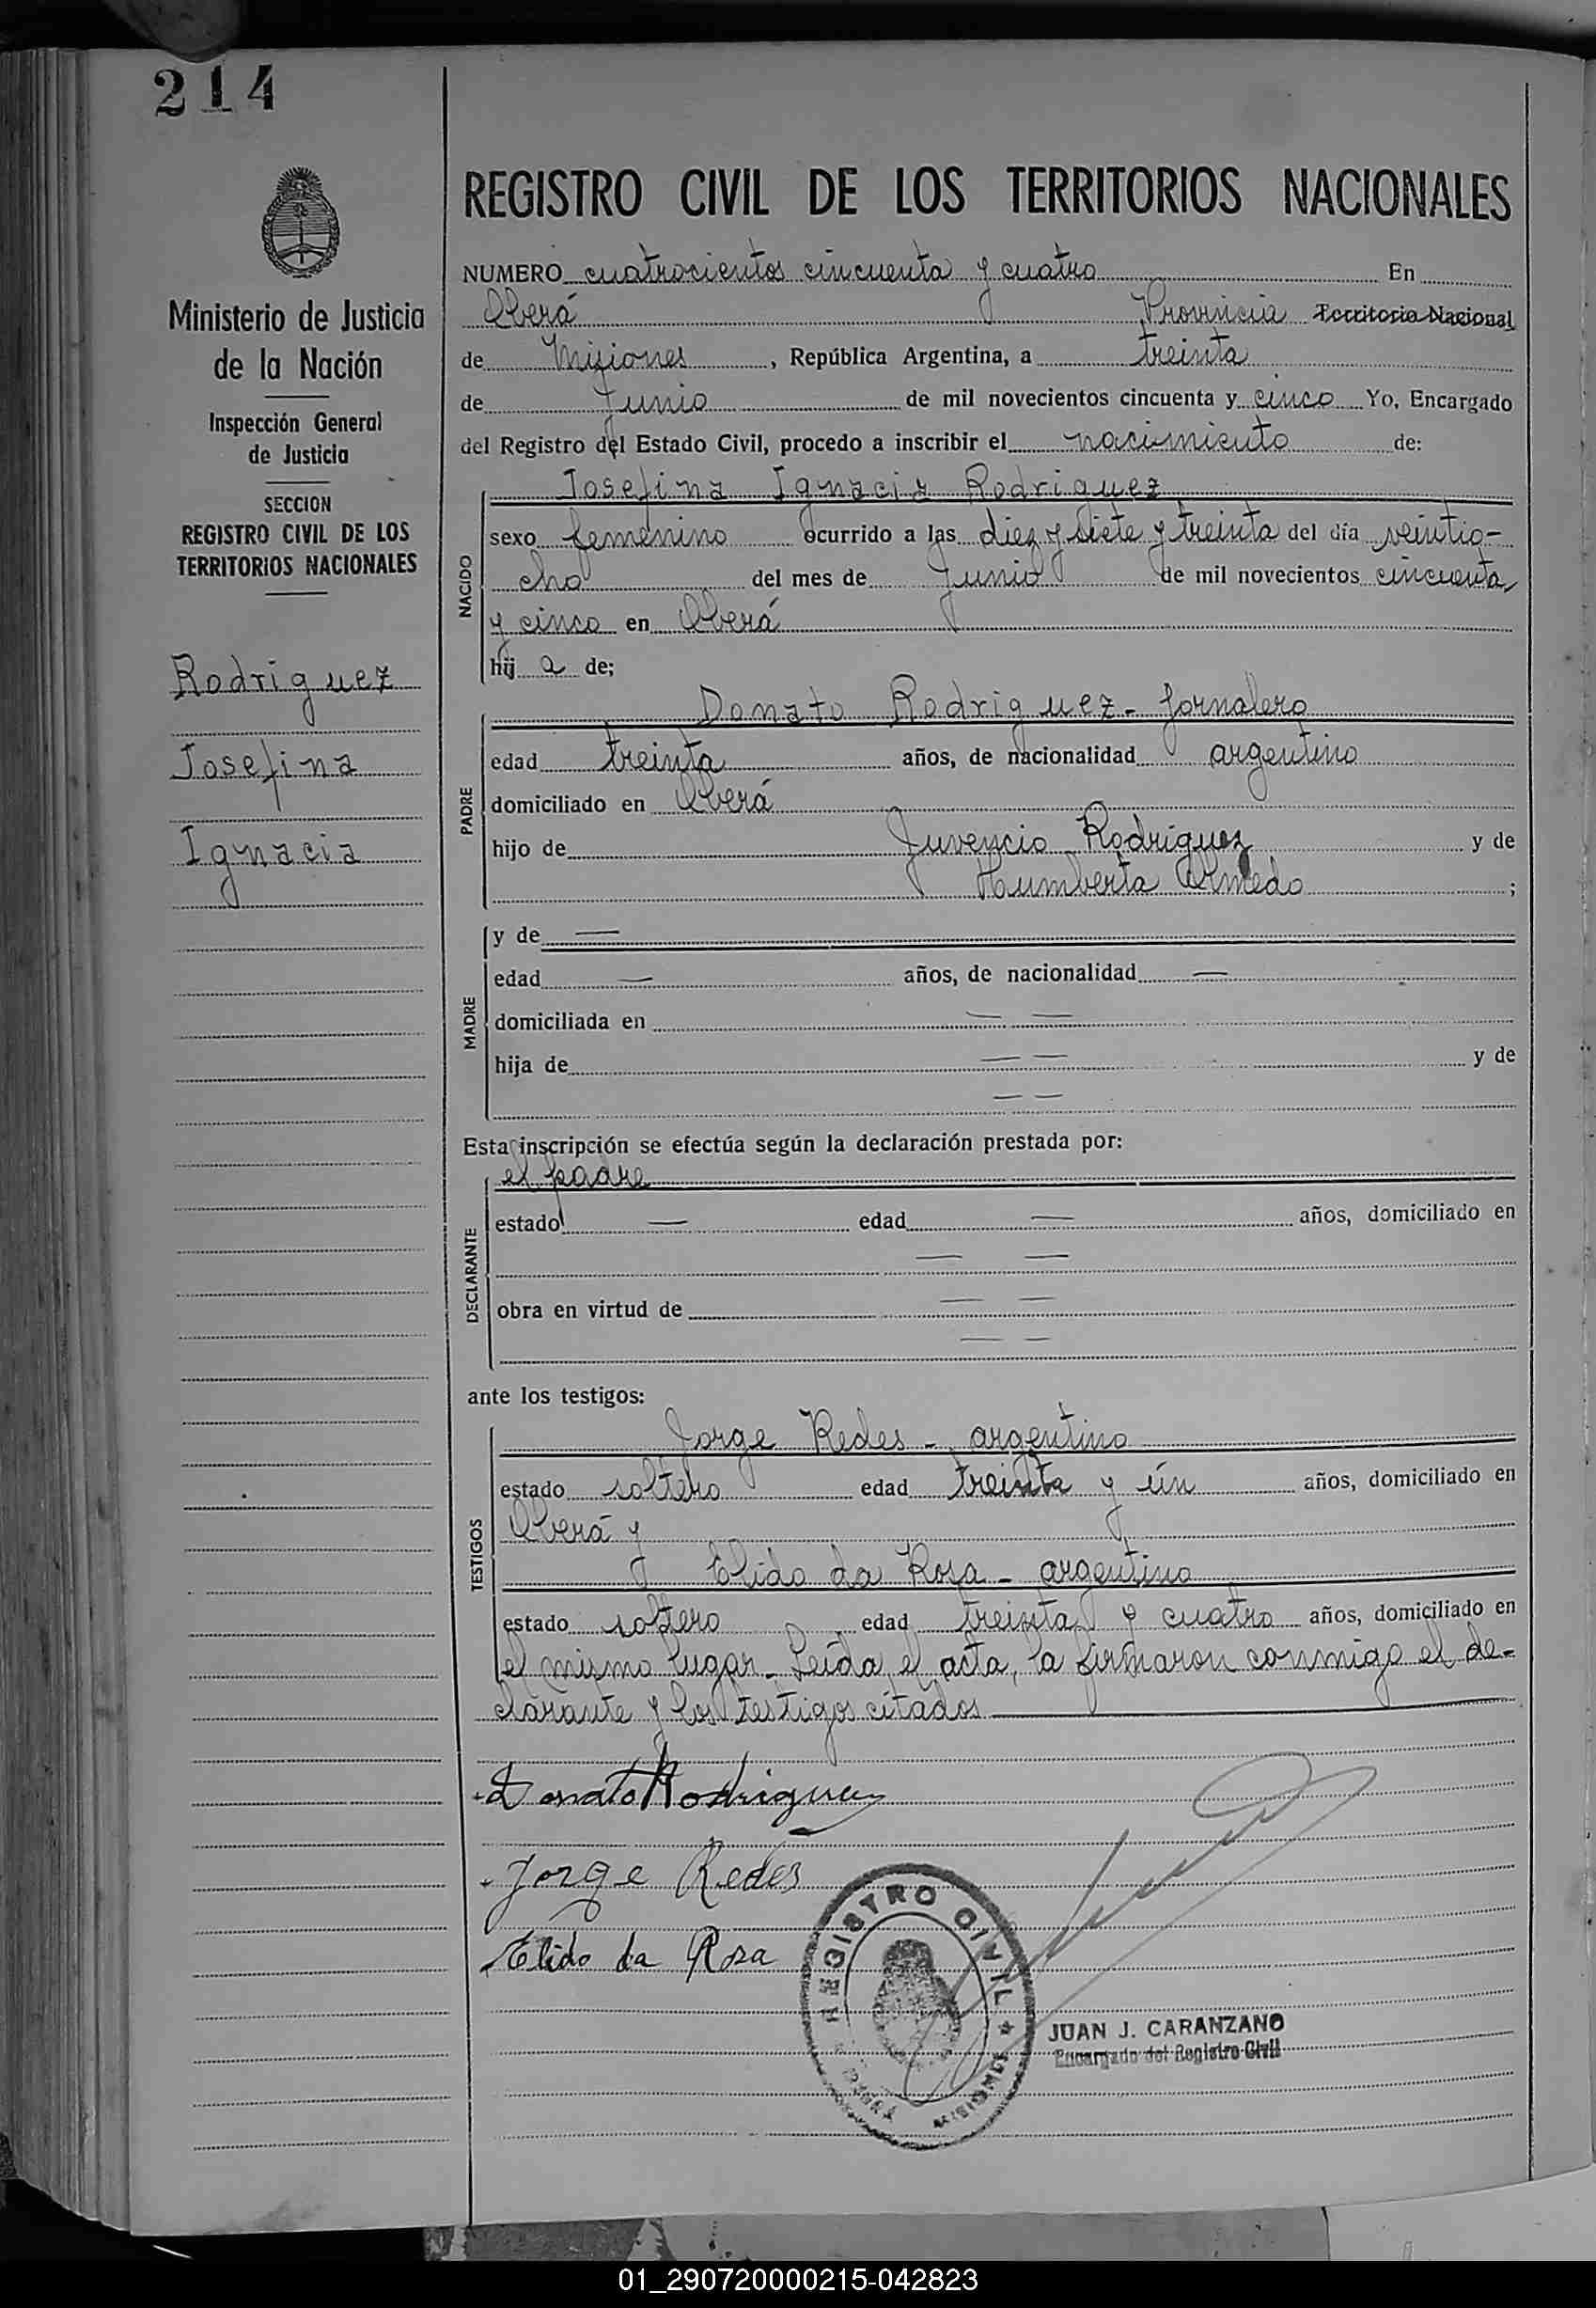 214
Ministerio de Justicia
de la Nación
Inspección General
de Justicia
SECCION
REGISTRO CIVIL DE LOS
TERRITORIOS NACIONALES
Rodriguez
Josefina
Ignacia
REGISTRO CIVIL DE LOS TERRITORIOS NACIONALES
NUMERO cuatrocientos cincuenta y cuatro En
Oberá Provincia Territorio Nacional
de Misiones, República Argentina, a treinta
de Junio de mil novecientos cincuenta y cinco Yo, Encargado
del Registro del Estado Civil, procedo a inscribir el nacimiento de:
NACIDO
Josefina Ignacia Rodriguez
sexo femenino ocurrido a las diez y siete y treinta del día veintio-
cho del mes de Junio de mil novecientos cincuenta
y cinco en Oberá
hij a de;
PADRE
Donato Rodriguez - jornalero
edad treinta años, de nacionalidad argentino
domiciliado en Oberá
hijo de Juvencio Rodriguez y de
Humberta Olmedo ;
MADRE
y de —
edad — años, de nacionalidad —
domiciliada en — —
hija de — — y de
— —
Esta inscripción se efectúa según la declaración prestada por:
DECLARANTE
el padre
estado — edad — años, domiciliado en
— —
obra en virtud de — —
— —
ante los testigos:
TESTIGOS
Jorge Redes - argentino
estado soltero edad treinta y ún años, domiciliado en
Oberá y
Elido da Rosa - argentino
estado soltero edad treinta y cuatro años, domiciliado en
el mismo lugar - Leída el acta, la firmaron conmigo el de-
clarante y los testigos citados
Donato Rodriguez
Jorge Redes
Elido da Rosa
REGISTRO CIVIL
MISIONES
JUAN J. CARANZANO
Encargado del Registro Civil
01_290720000215-042823